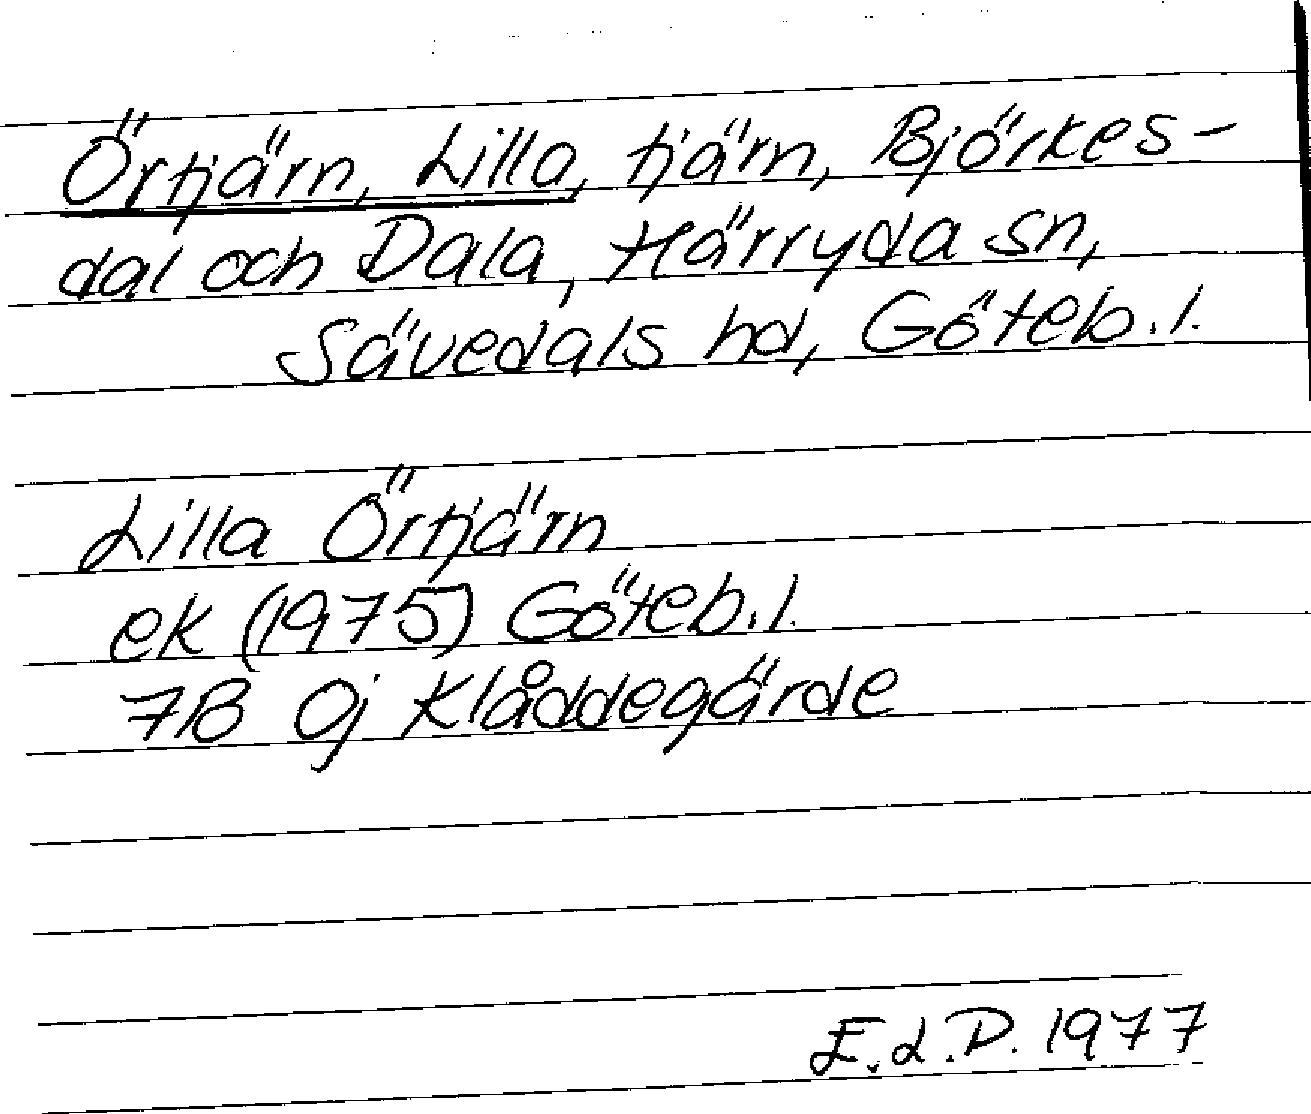 Örtjärn, Lilla, tjärn, Björkes-
dal och Dala, Härryda sn,
Sävedals hd, Göteb.l.
Lilla Örtjärn
ek (1975) Göteb.l.
7B 0j Klåddegärde
E.L.P. 1977